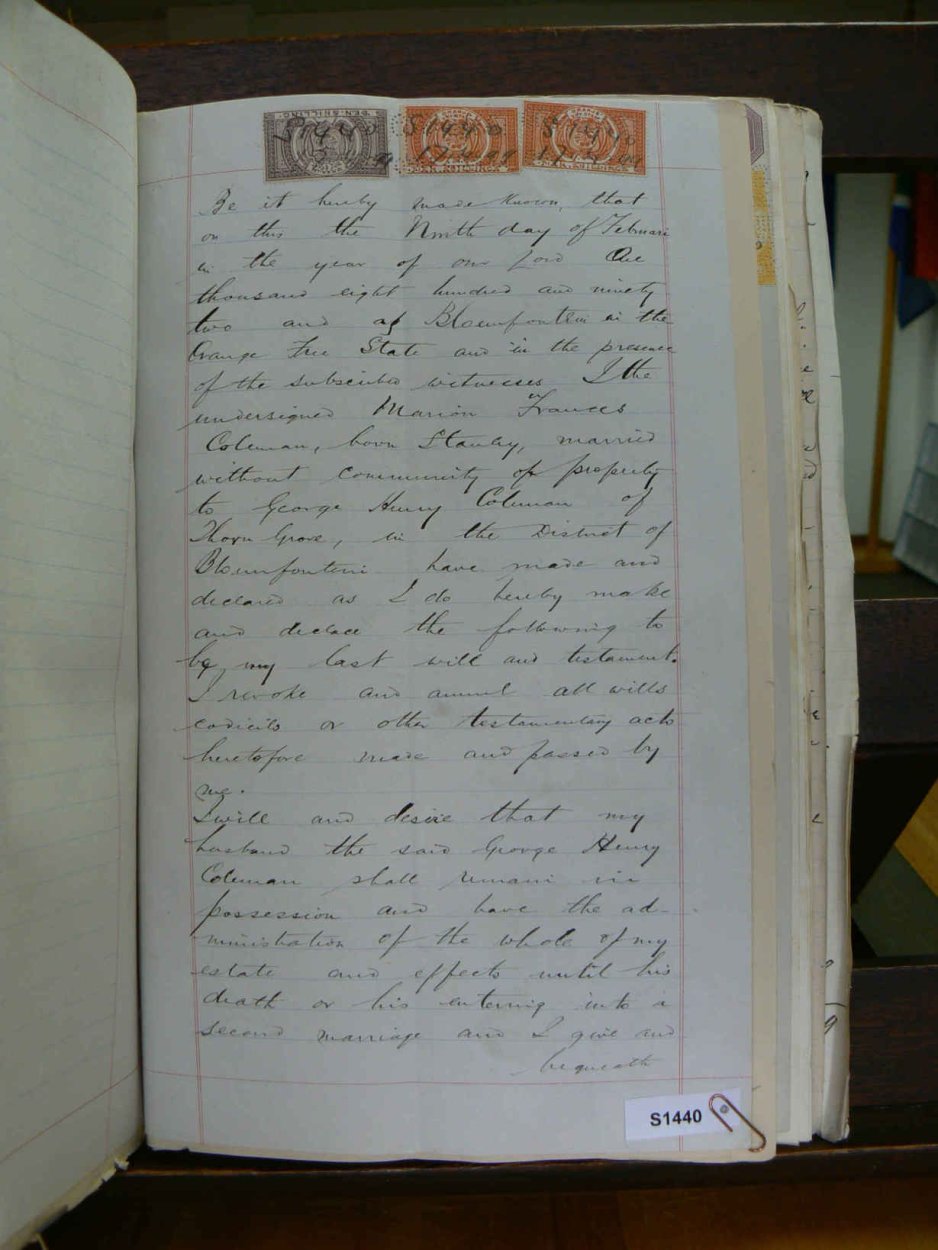 S1440 S1440 S1440
17 99 17 99
Be it hereby made known, that
on this the Ninth day of Februari
in the year of our Lord One
thousand eight hundred and ninety
two and at Bloemfontein in the
Orange Free State and in the presence
of the subscribed witnesses I the
undersigned Marion Frances
Coleman, born Stanley, married
without community of property
to George Henry Coleman of
Thorn Grove, in the District of
Bloemfontein have made and
declared as I do hereby make
and declare the following to
be my last will and testament.
I revoke and annul all wills
codicils or other testamentary acts
heretofore made and passed by
me.
I will and desire that my
husband the said George Henry
Coleman shall remain in
possession and have the ad-
ministration of the whole of my
estate and effects until his
death or his entering into a
second marriage and I give and
bequeath
S1440